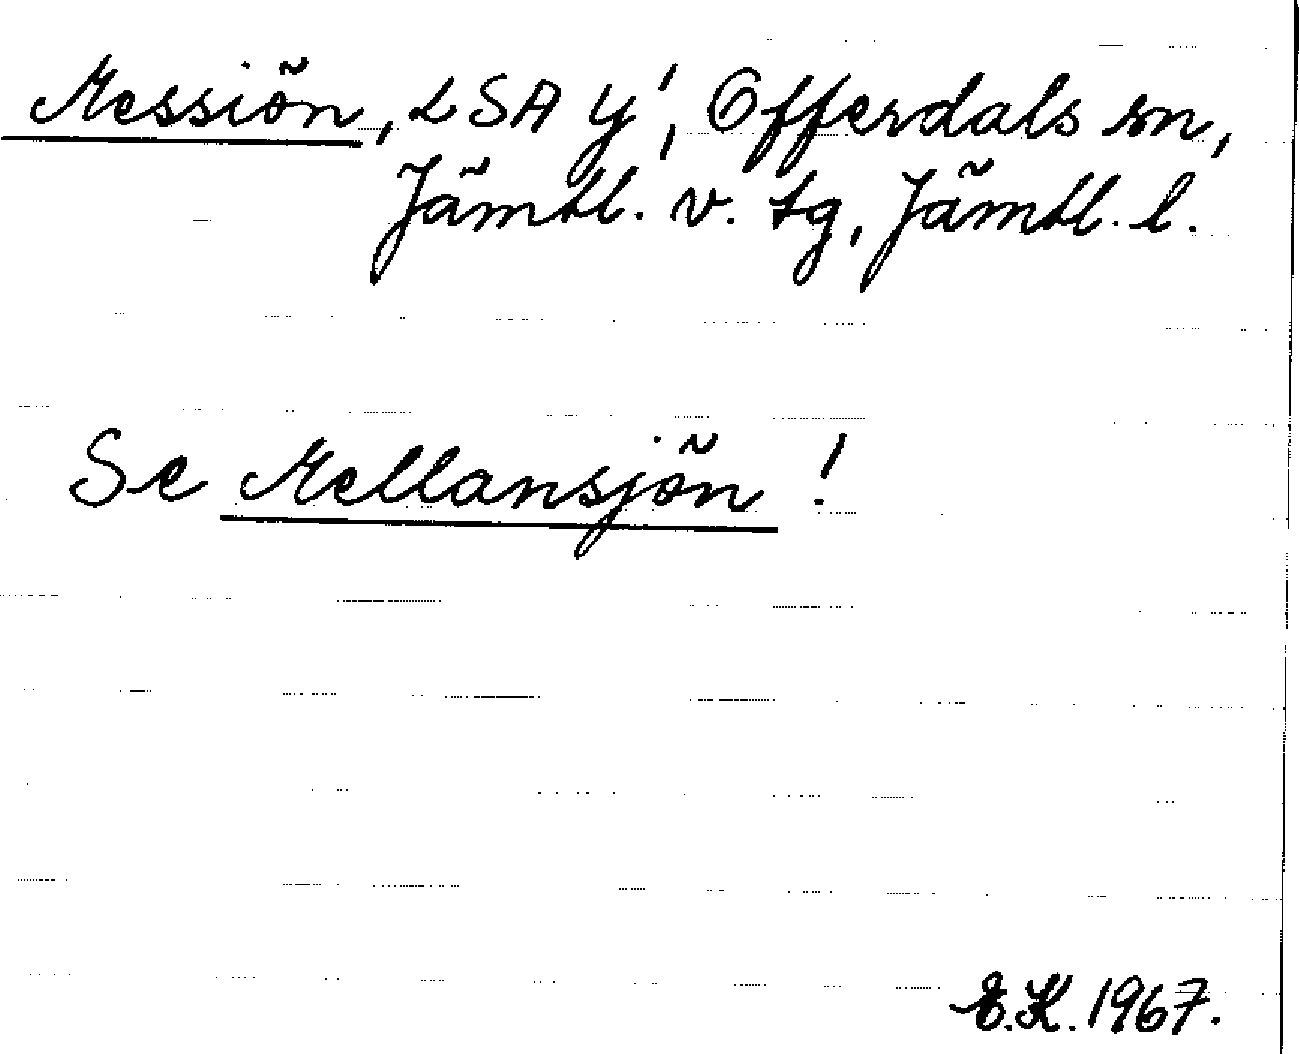 Messiön, LSA y', Offerdals sn,
Jämtl. v. tg, Jämtl. l.
Se Mellansjön !
E.K. 1967.